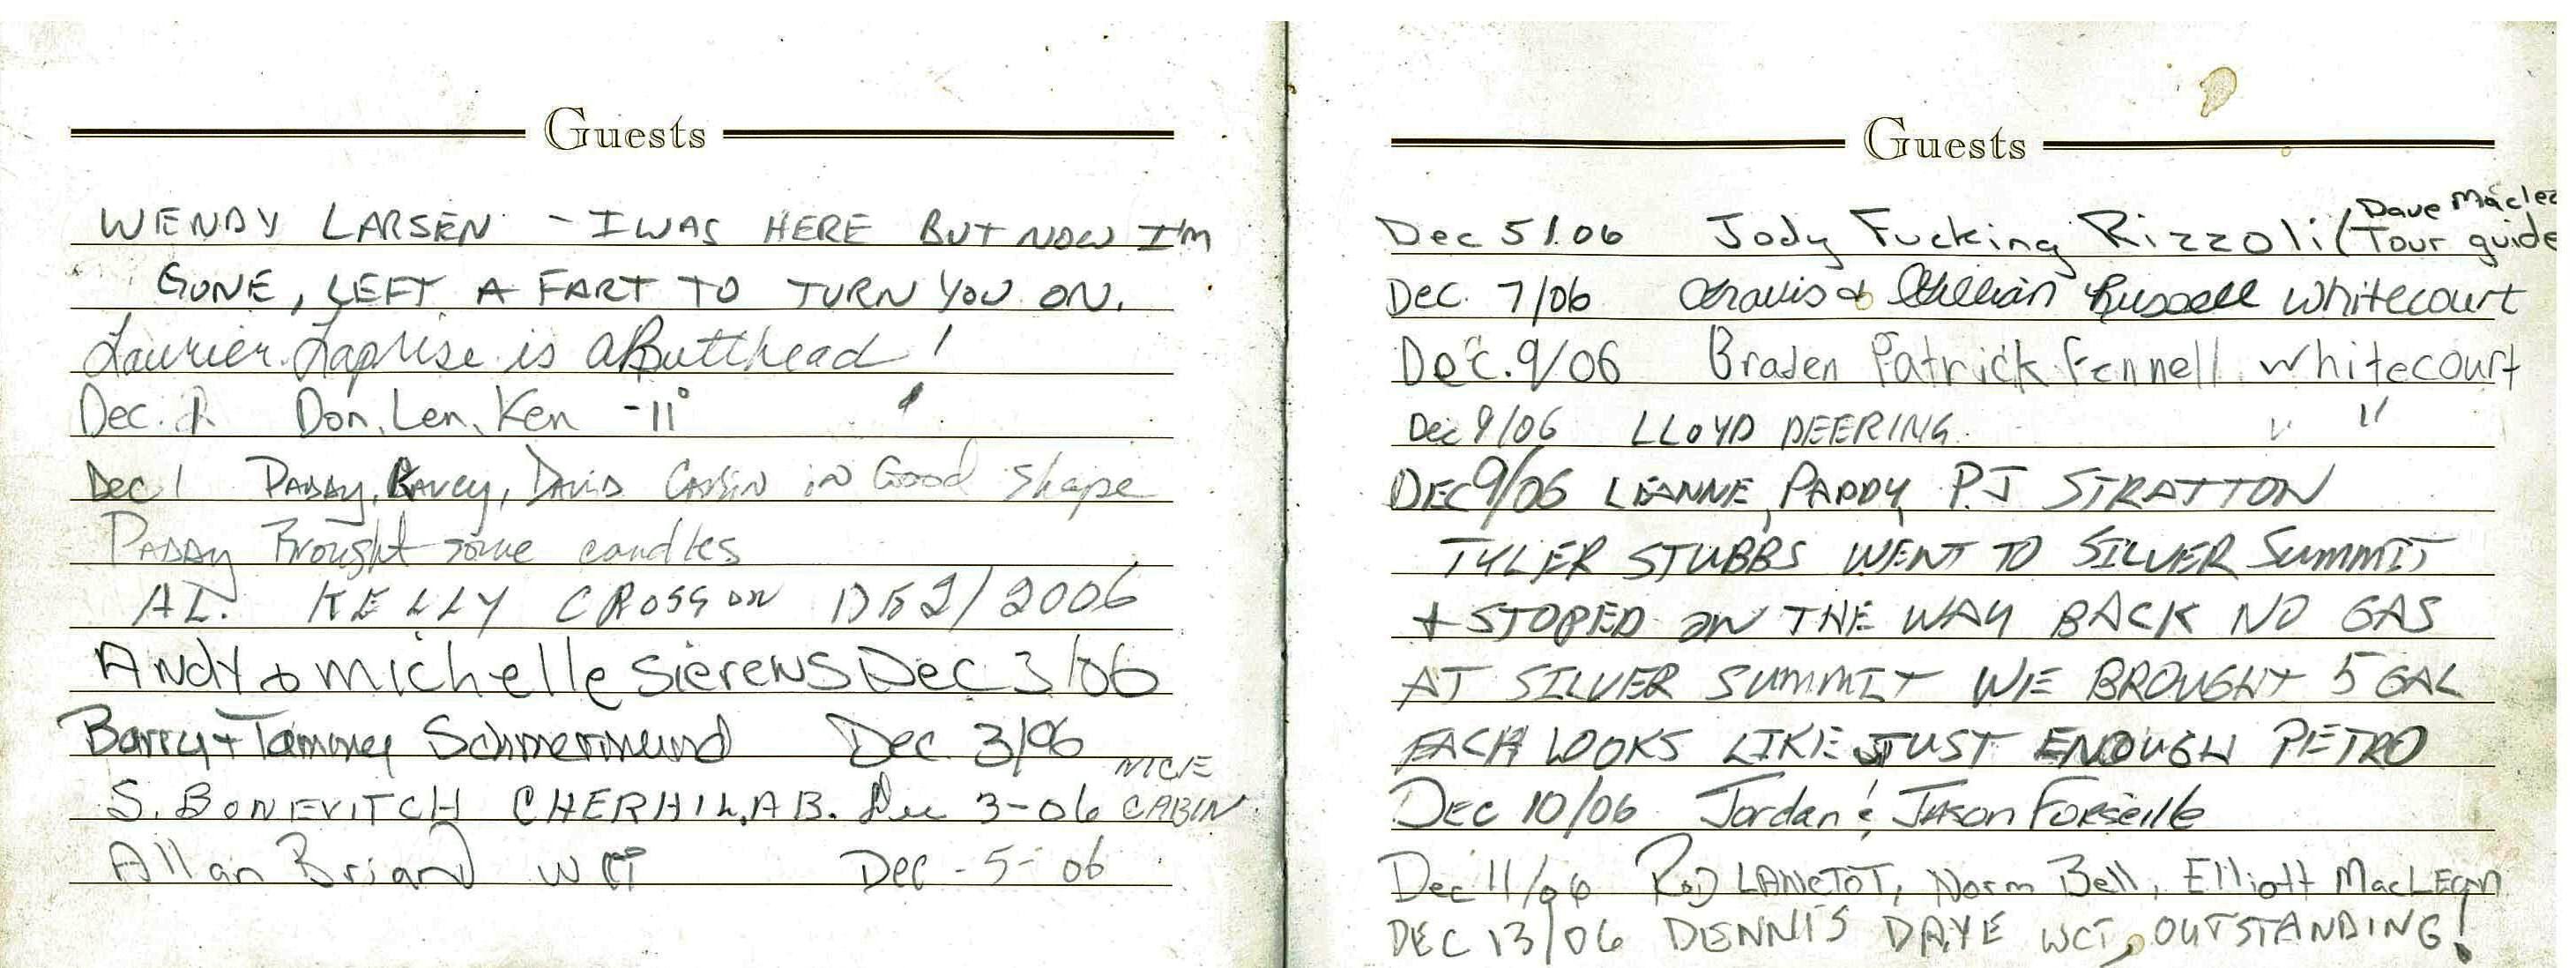 Guests
WENDY LARSEN - I WAS HERE BUT NOW I'M
GONE, LEFT A FART TO TURN YOU ON.
Laurier Laprise is a Butthead!
Dec. Don, Len, Ken -11°
Dec 1 PADDY, DAVID CABIN in Good Shape
PADDY Brought some candles
AL. KELLY CROSSON DE2/2006
Andy & Michelle Sierens Dec 3/06
Barry + Tammy Dec 3/06
NICE
S. BONEVITCH CHERHILL, AB. Dec 3-06 CABIN
Allan Briand WCT Dec-5-06
Guests
Dave Maclea
Dec 5/06 Jody Fucking Rizzoli (Tour guide
Dec. 7/06 Travis & Russell Whitecourt
Dec. 9/06 Braden Patrick Fennell Whitecourt
Dec 9/06 LLOYD DEERING " "
DEC 9/06 LEANNE, PADDY, P.J STRATTON
TYLER STUBBS WENT TO SILVER SUMMIT
+ STOPED ON THE WAY BACK NO GAS
AT SILVER SUMMIT WE BROUGHT 5 GAL
EACH LOOKS LIKE JUST ENOUGH PETRO
DEC 10/06 Jordan & Jason Forseille
Dec 11/06 ROD LANCTOT, Norm Bell, Elliott MacLEan
DEC 13/06 DENNIS DAYE WCT, OUTSTANDING!